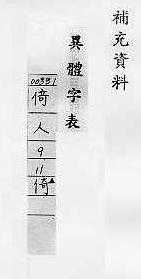 補充資料
異體字表
00331
倚
人
9
11